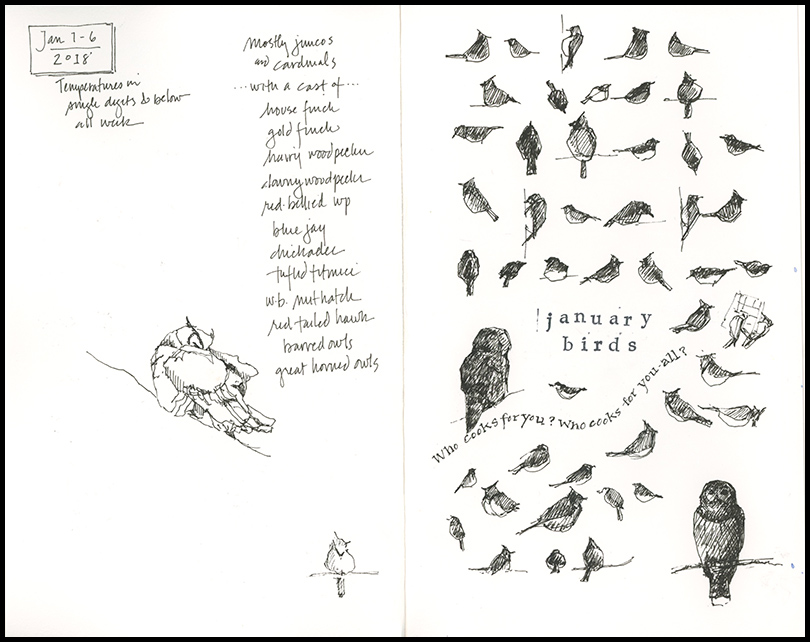 Jan 1-6
2018
Temperatures in
single digits & below
all week
mostly juncos
and cardinals
...with a cast of...
house finch
gold finch
hairy woodpecker
downy woodpecker
red-bellied wp
blue jay
chickadee
tufted titmice
w.b. nuthatch
red tailed hawk
barred owls
great horned owls
january
birds
Who cooks for you? Who cooks for you-all?